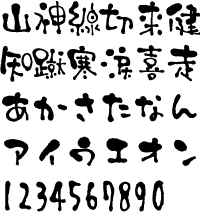 山神線切来健
知蹴寒涙喜走
あかさたなん
アイウエオン
1234567890